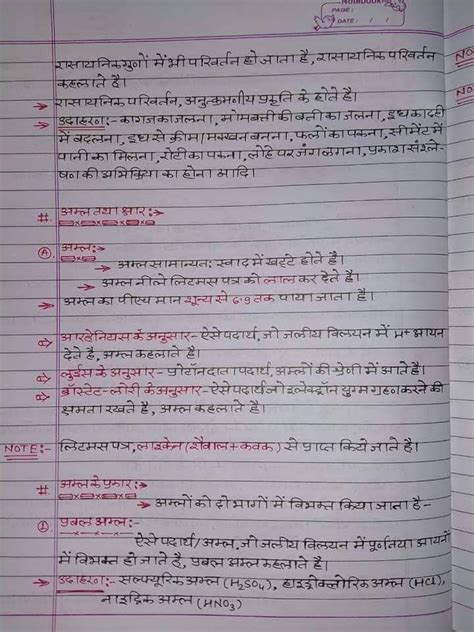 NOTEBOOK
PAGE:
DATE: / /
रासायनिक गुणों में भी परिवर्तन हो जाता है, रासायनिक परिवर्तन
कहलाते है।
→ रासायनिक परिवर्तन, अनुत्क्रमणीय प्रकृति के होते है।
→ उदाहरण:- कागज का जलना, मोमबत्ती की बत्ती का जलना, दूध का दही
में बदलना, दूध से क्रीम/मक्खन बनना, फलों का पकना, सीमेंट में
पानी का मिलना, रोटी का पकना, लोहे पर जंग लगना, प्रकाश संश्ले-
षण की अभिक्रिया का होना आदि।
#. अम्ल तथा क्षार:→
Ⓐ. अम्ल:→
→ अम्ल सामान्यत: स्वाद में खट्टे होते है।
→ अम्ल नीले लिटमस पत्र को लाल कर देते है।
→ अम्ल का पीएच मान शून्य से 6.9 तक पाया जाता है।
आरहेनियस के अनुसार- ऐसे पदार्थ, जो जलीय विलयन में H+ आयन
देते है, अम्ल कहलाते है।
लुईस के अनुसार- प्रोटॉनदाता पदार्थ, अम्लों की श्रेणी में आते है।
ब्रोंस्टेट-लोरी के अनुसार- ऐसे पदार्थ जो इलेक्ट्रॉन युग्म ग्रहण करने की
क्षमता रखते है, अम्ल कहलाते है।
NOTE:- लिटमस पत्र, लाइकेन (शैवाल+कवक) से प्राप्त किये जाते है।
#. अम्ल के प्रकार:→
→ अम्लों को दो भागों में विभक्त किया जाता है-
① प्रबल अम्ल:-
ऐसे पदार्थ/अम्ल, जो जलीय विलयन में पूर्णतया आयनों
में विभक्त हो जाते है, प्रबल अम्ल कहलाते है।
→ उदाहरण:- सल्फ्यूरिक अम्ल (H₂SO₄), हाइड्रोक्लोरिक अम्ल (HCl),
नाइट्रिक अम्ल (HNO₃)